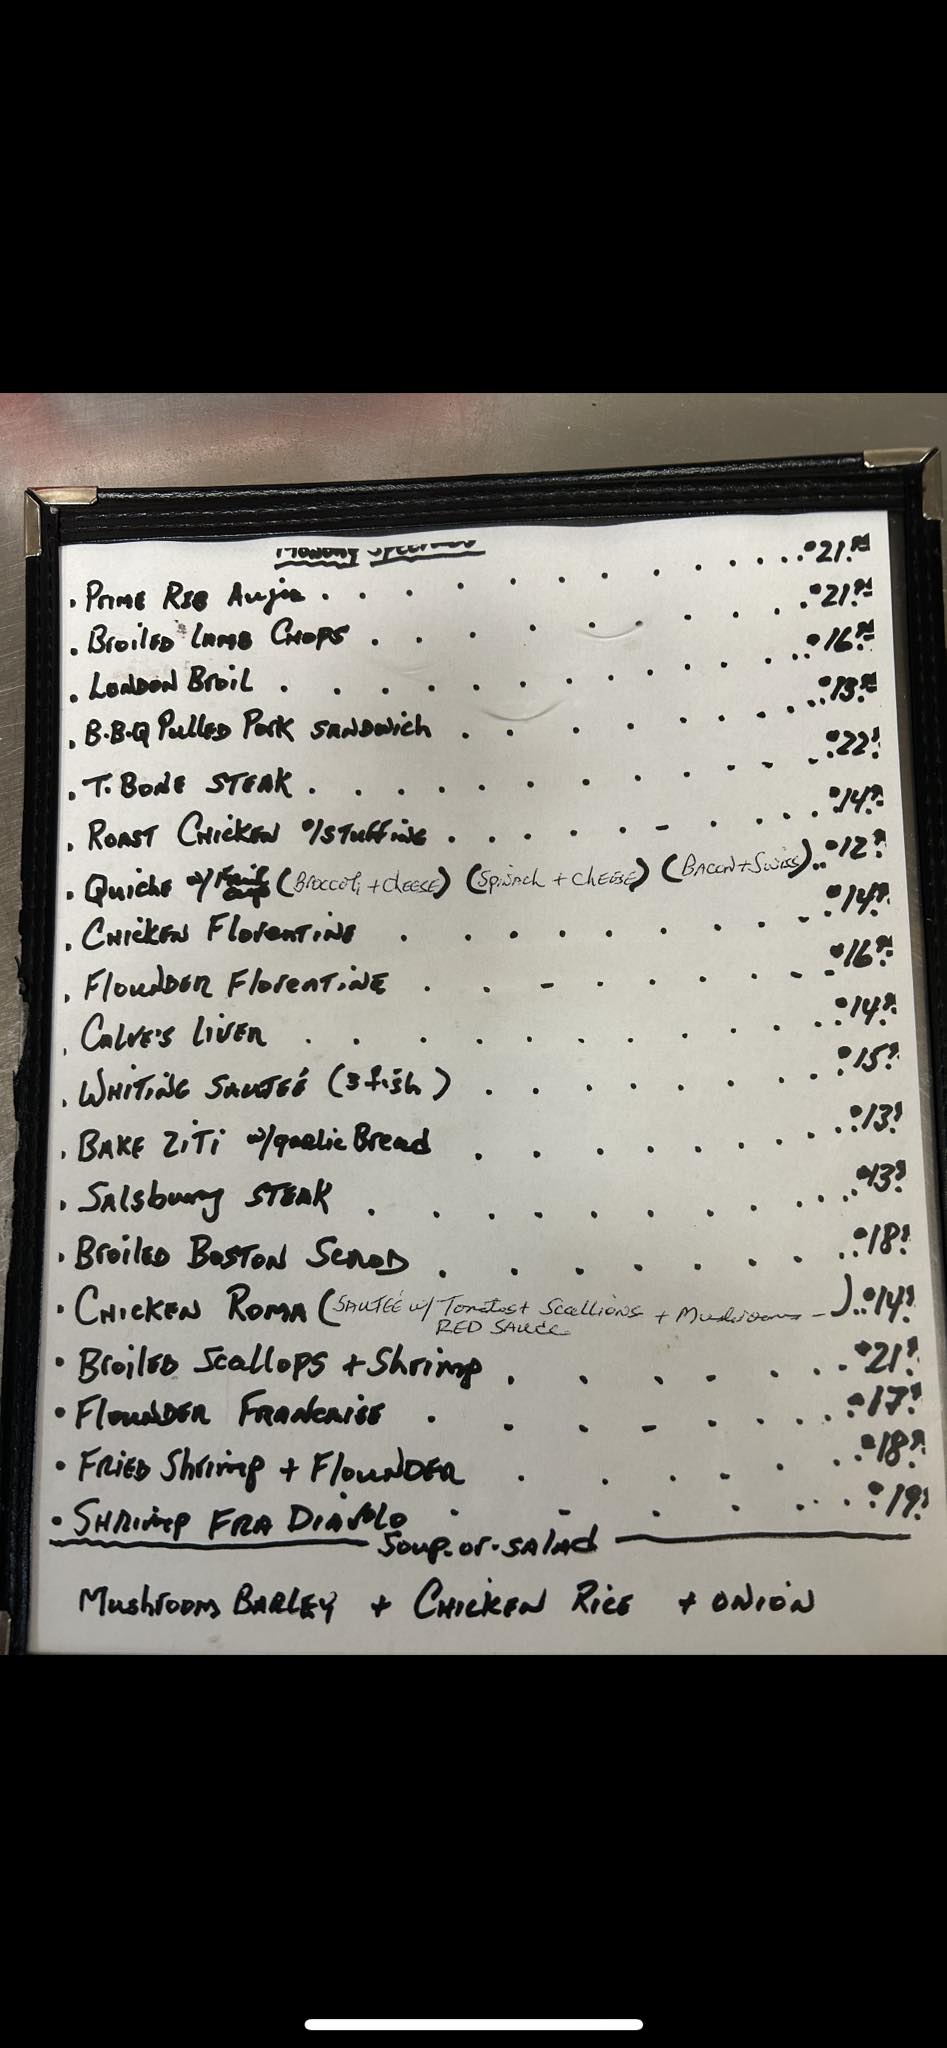 Monday Specials
. Prime Rib Aujus . . . . . . . . . . $21.
. Broiled Lamb Chops . . . . . . . . . $21.
. London Broil . . . . . . . . . . . $16.
. B.B.Q Pulled Pork Sandwich . . . . . . . $13.
. T. Bone Steak . . . . . . . . . . . $22.
. Roast Chicken w/stuffing . . . . . . . $14.
. Quiche w/ Fruit Cup (Broccoli + cheese) (Spinach + cheese) (Bacon + Swiss) .. $12.
. Chicken Florentine . . . . . . . . . $14.
. Flounder Florentine . . . . . . . . $16.
. Calve's Liver . . . . . . . . . . . $14.
. Whiting Sauteé (3 fish) . . . . . . . . $15.
. Bake Ziti w/garlic Bread . . . . . . . $13.
. Salsbury Steak . . . . . . . . . . $13.
. Broiled Boston Scrod . . . . . . . . $18.
. Chicken Roma (Sauteé w/ Tomatoes + Scallions + Mushrooms - ) .. $14.
Red Sauce
. Broiled Scallops + Shrimp . . . . . . . $21.
. Flounder Francaise . . . . . . . . $17.
. Fried Shrimp + Flounder . . . . . . . $18.
. Shrimp Fra Diavlo . . . . . . . . $19.
Soup-or-salad
Mushroom Barley + Chicken Rice + Onion